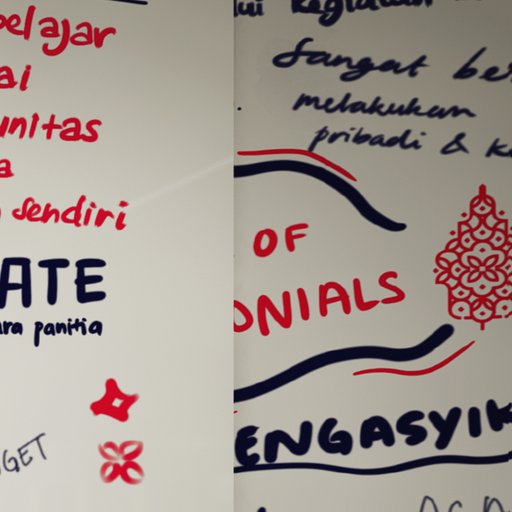 belajar
ai
unitas
a
sendiri
ATE
ara panitia
GET
lui kegiatan
Sangat ber
melakukan
pribadi & k
OF
ONIALS
ENGASYIK